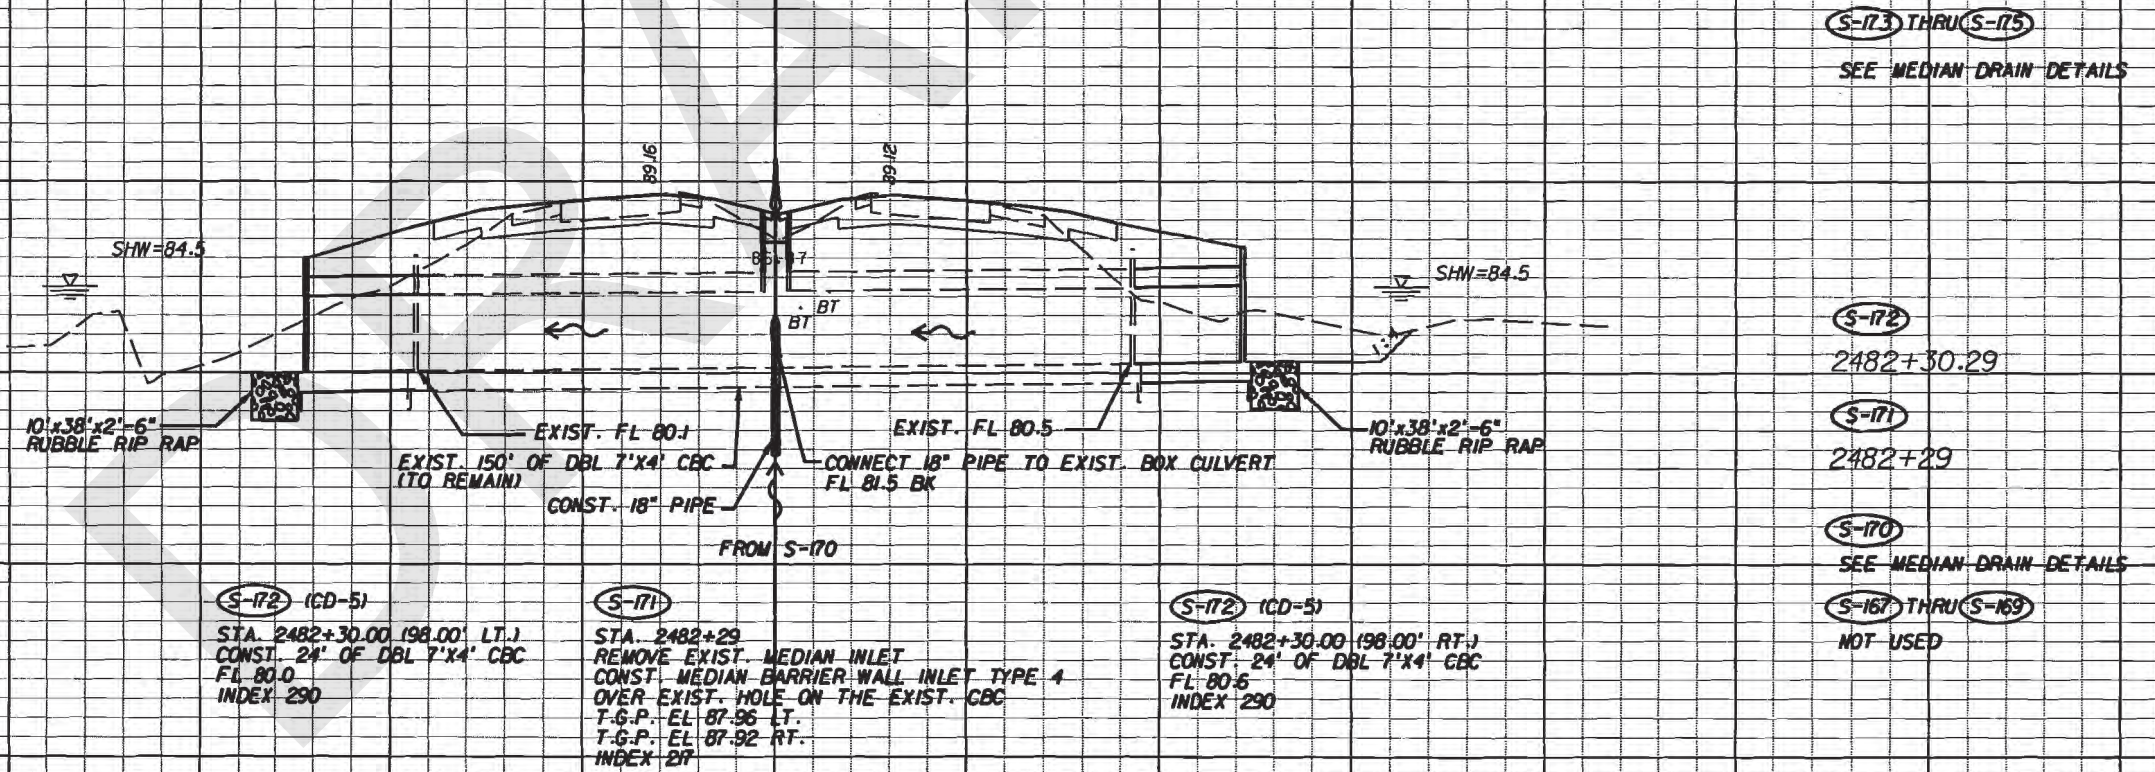 S-173 THRU S-175
SEE MEDIAN DRAIN DETAILS
89.16
89.12
SHW=84.5
SHW=84.5
BT
BT
1:4
S-172
2482+30.29
S-171
2482+29
10'x38'x2'-6"
RUBBLE RIP RAP
EXIST. FL 80.1
EXIST. FL 80.5
10'x38'x2'-6"
RUBBLE RIP RAP
EXIST. 150' OF DBL 7'X4' CBC
(TO REMAIN)
CONNECT 18" PIPE TO EXIST. BOX CULVERT
FL 81.5 BK
CONST. 18" PIPE
FROM S-170
S-170
SEE MEDIAN DRAIN DETAILS
S-167 THRU S-169
NOT USED
S-172 (CD-5)
STA. 2482+30.00 (98.00' LT.)
CONST. 24' OF DBL 7'X4' CBC
FL 80.0
INDEX 290
S-171
STA. 2482+29
REMOVE EXIST. MEDIAN INLET
CONST. MEDIAN BARRIER WALL INLET TYPE 4
OVER EXIST. HOLE ON THE EXIST. CBC
T.G.P. EL 87.96 LT.
T.G.P. EL 87.92 RT.
INDEX 217
S-172 (CD-5)
STA. 2482+30.00 (98.00' RT.)
CONST. 24' OF DBL 7'X4' CBC
FL 80.6
INDEX 290